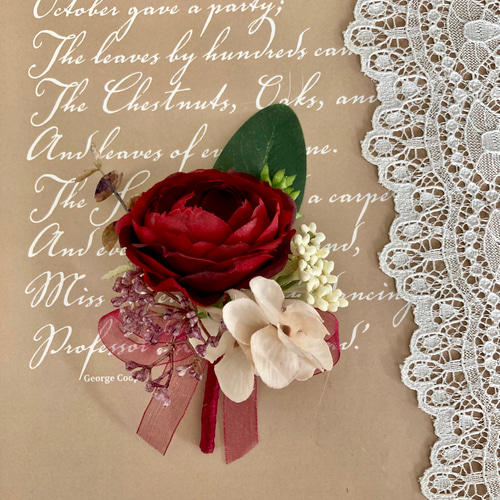 October gave a party;
The leaves by hundreds cam
The Chestnuts, Oaks, and
And leaves of ev    ne.
The S    a carpe
And eve    nd,
Miss    ncing
Professor    d.'
George Coo